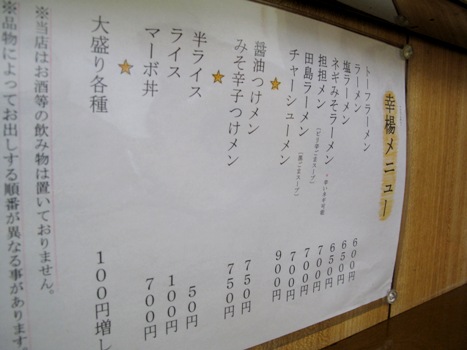 幸楊メニュー
トーフラーメン 600円
ラーメン 650円
塩ラーメン 650円
ネギみそラーメン 700円
担担メン (ピリ辛ごまスープ) 700円
田島ラーメン (黒ごまスープ) 700円
チャーシューメン 900円
★
醤油つけメン 750円
みそ辛子つけメン 750円
★
半ライス 50円
ライス 100円
マーボ丼 700円
★
大盛り各種 100円増し
※当店はお酒等の飲み物は置いておりません。
※品物によってお出しする順番が異なる事があります